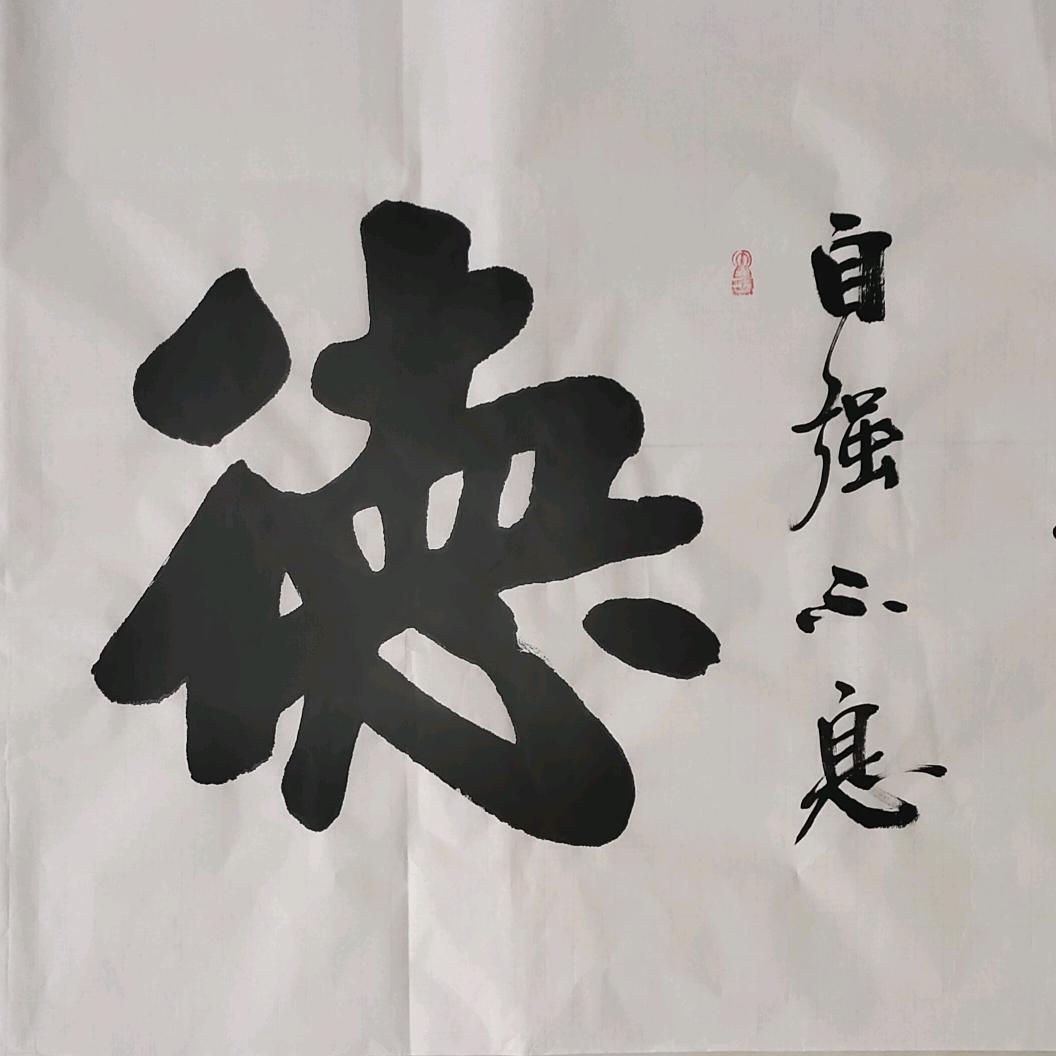 自强不息
德